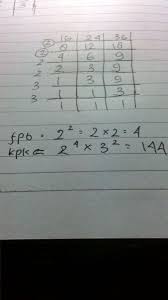 ② 16 24 36
② 8 12 18
2 4 6 9
2 2 3 9
3 1 3 9
3 1 1 3
1 1 1
fpb = 2² = 2 × 2 = 4
kpk = 2⁴ × 3² = 144